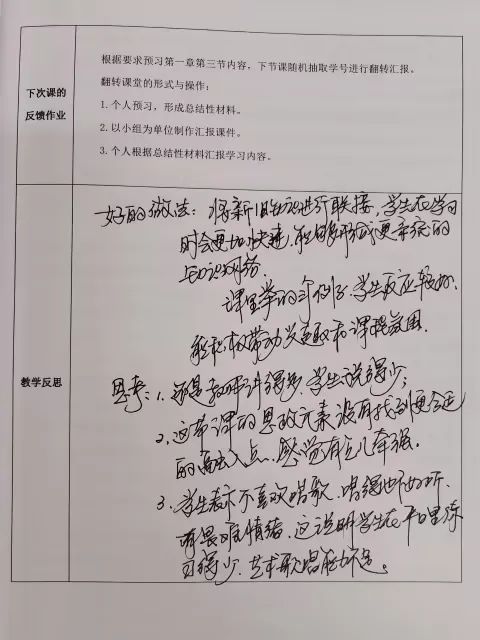 根据要求预习第一章第三节内容，下节课随机抽取学号进行翻转汇报。
翻转课堂的形式与操作：
1.个人预习，形成总结性材料。
2.以小组为单位制作汇报课件。
3.个人根据总结性材料汇报学习内容。
下次课的
反馈作业
教学反思
好的做法：将新旧知识进行联接，学生在学习
时会更加快速，能够形成更系统的
知识网络。
课堂举的个例子，学生反应较好，
能积极带动兴趣和课程氛围。
思考：1.还是教师讲得多，学生说得少；
2.这节课的思政元素没有找到更合适
的融入点，感觉有点儿牵强。
3.学生表示不喜欢唱歌，唱得也不好听，
有畏难情绪，这说明学生在平日里练
习得少，艺术歌唱能力不足。